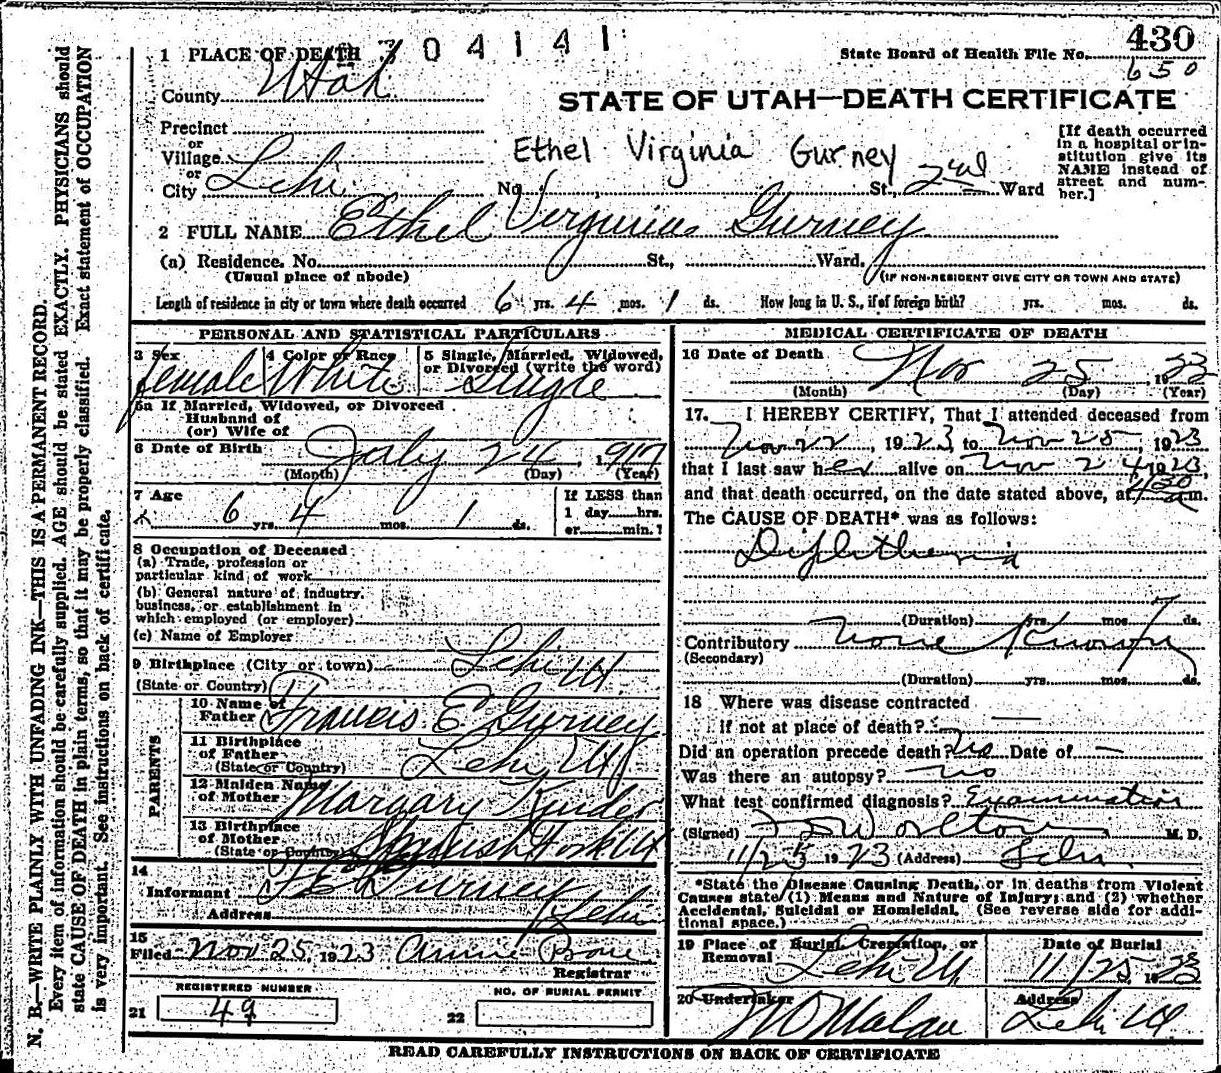 N. B.—WRITE PLAINLY WITH UNFADING INK—THIS IS A PERMANENT RECORD.
Every item of information should be carefully supplied. AGE should be stated EXACTLY. PHYSICIANS should
state CAUSE OF DEATH in plain terms, so that it may be properly classified. Exact statement of OCCUPATION
is very important. See instructions on back of certificate.
04141
430
State Board of Health File No. 650
1 PLACE OF DEATH
County Utah
STATE OF UTAH—DEATH CERTIFICATE
Precinct
or
Village
or
City Lehi No. St., 2nd Ward
Ethel Virginia Gurney
[If death occurred
in a hospital or in-
stitution give its
NAME instead of
street and num-
ber.]
2 FULL NAME Ethel Verginia Gurney
(a) Residence. No. St., Ward.
(Usual place of abode) (IF NON-RESIDENT GIVE CITY OR TOWN AND STATE)
Length of residence in city or town where death occurred 6 yrs. 4 mos. 1 ds. How long in U. S., if of foreign birth? yrs. mos. ds.
PERSONAL AND STATISTICAL PARTICULARS
3 Sex
female
4 Color or Race
White
5 Single, Married, Widowed,
or Divorced (write the word)
Single
5a If Married, Widowed, or Divorced
Husband of
(or) Wife of
6 Date of Birth July 24, 1917
(Month) (Day) (Year)
7 Age
6 yrs. 4 mos. 1 ds.
If LESS than
1 day hrs.
or min.?
8 Occupation of Deceased
(a) Trade, profession or
particular kind of work
(b) General nature of industry,
business, or establishment in
which employed (or employer)
(c) Name of Employer
9 Birthplace (City or town) Lehi Ut
(State or Country)
PARENTS
10 Name of
Father Francis E Gurney
11 Birthplace
of Father Lehi Ut
(State or Country)
12 Maiden Name
of Mother Margary Kinder
13 Birthplace
of Mother Spanish Fork Ut
(State or Country)
14
Informant F E Gurney
Address Lehi
15
Filed Nov 25, 1923 Annie Bone
Registrar
REGISTERED NUMBER
21 49
NO. OF BURIAL PERMIT
22
MEDICAL CERTIFICATE OF DEATH
16 Date of Death Nov 25, 1923
(Month) (Day) (Year)
17. I HEREBY CERTIFY, That I attended deceased from
Nov 22, 1923 to Nov 25, 1923
that I last saw her alive on Nov 24, 1923,
and that death occurred, on the date stated above, at m.
The CAUSE OF DEATH* was as follows:
Diphtheria
(Duration) yrs. mos. 7 ds.
Contributory None Known
(Secondary)
(Duration) yrs. mos. ds.
18 Where was disease contracted
if not at place of death? —
Did an operation precede death? No Date of —
Was there an autopsy? no
What test confirmed diagnosis? Examination
(Signed) Worlton M. D.
11/25 1923 (Address) Lehi
*State the Disease Causing Death, or in deaths from Violent
Causes state (1) Means and Nature of Injury; and (2) whether
Accidental, Suicidal or Homicidal. (See reverse side for addi-
tional space.)
19 Place of Burial, Cremation, or
Removal Lehi Ut
Date of Burial
11/25, 1923
20 Undertaker
Address
Lehi Ut
READ CAREFULLY INSTRUCTIONS ON BACK OF CERTIFICATE